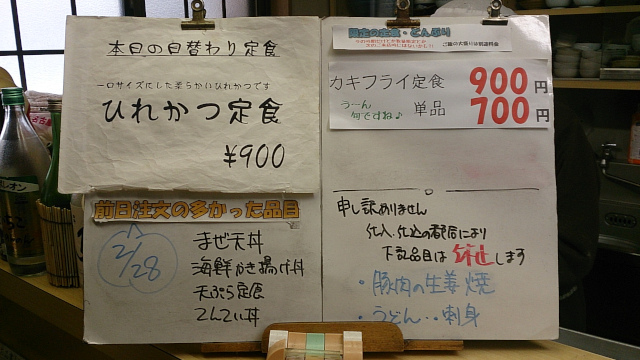 本日の日替わり定食
一口サイズにした柔らかいひれかつです
ひれかつ定食
¥900
前日注文の多かった品目
2/28
まぜ天丼
海鮮かき揚げ丼
天ぷら定食
てんてい丼
限定の定食・どんぶり
ご飯の大盛りは別途料金
カキフライ定食 900円
うーん
何ですね♪
単品 700円
申し訳ありません
仕入、仕込の都合により
下記品目は休止します
・豚肉の生姜焼
・うどん・・刺身